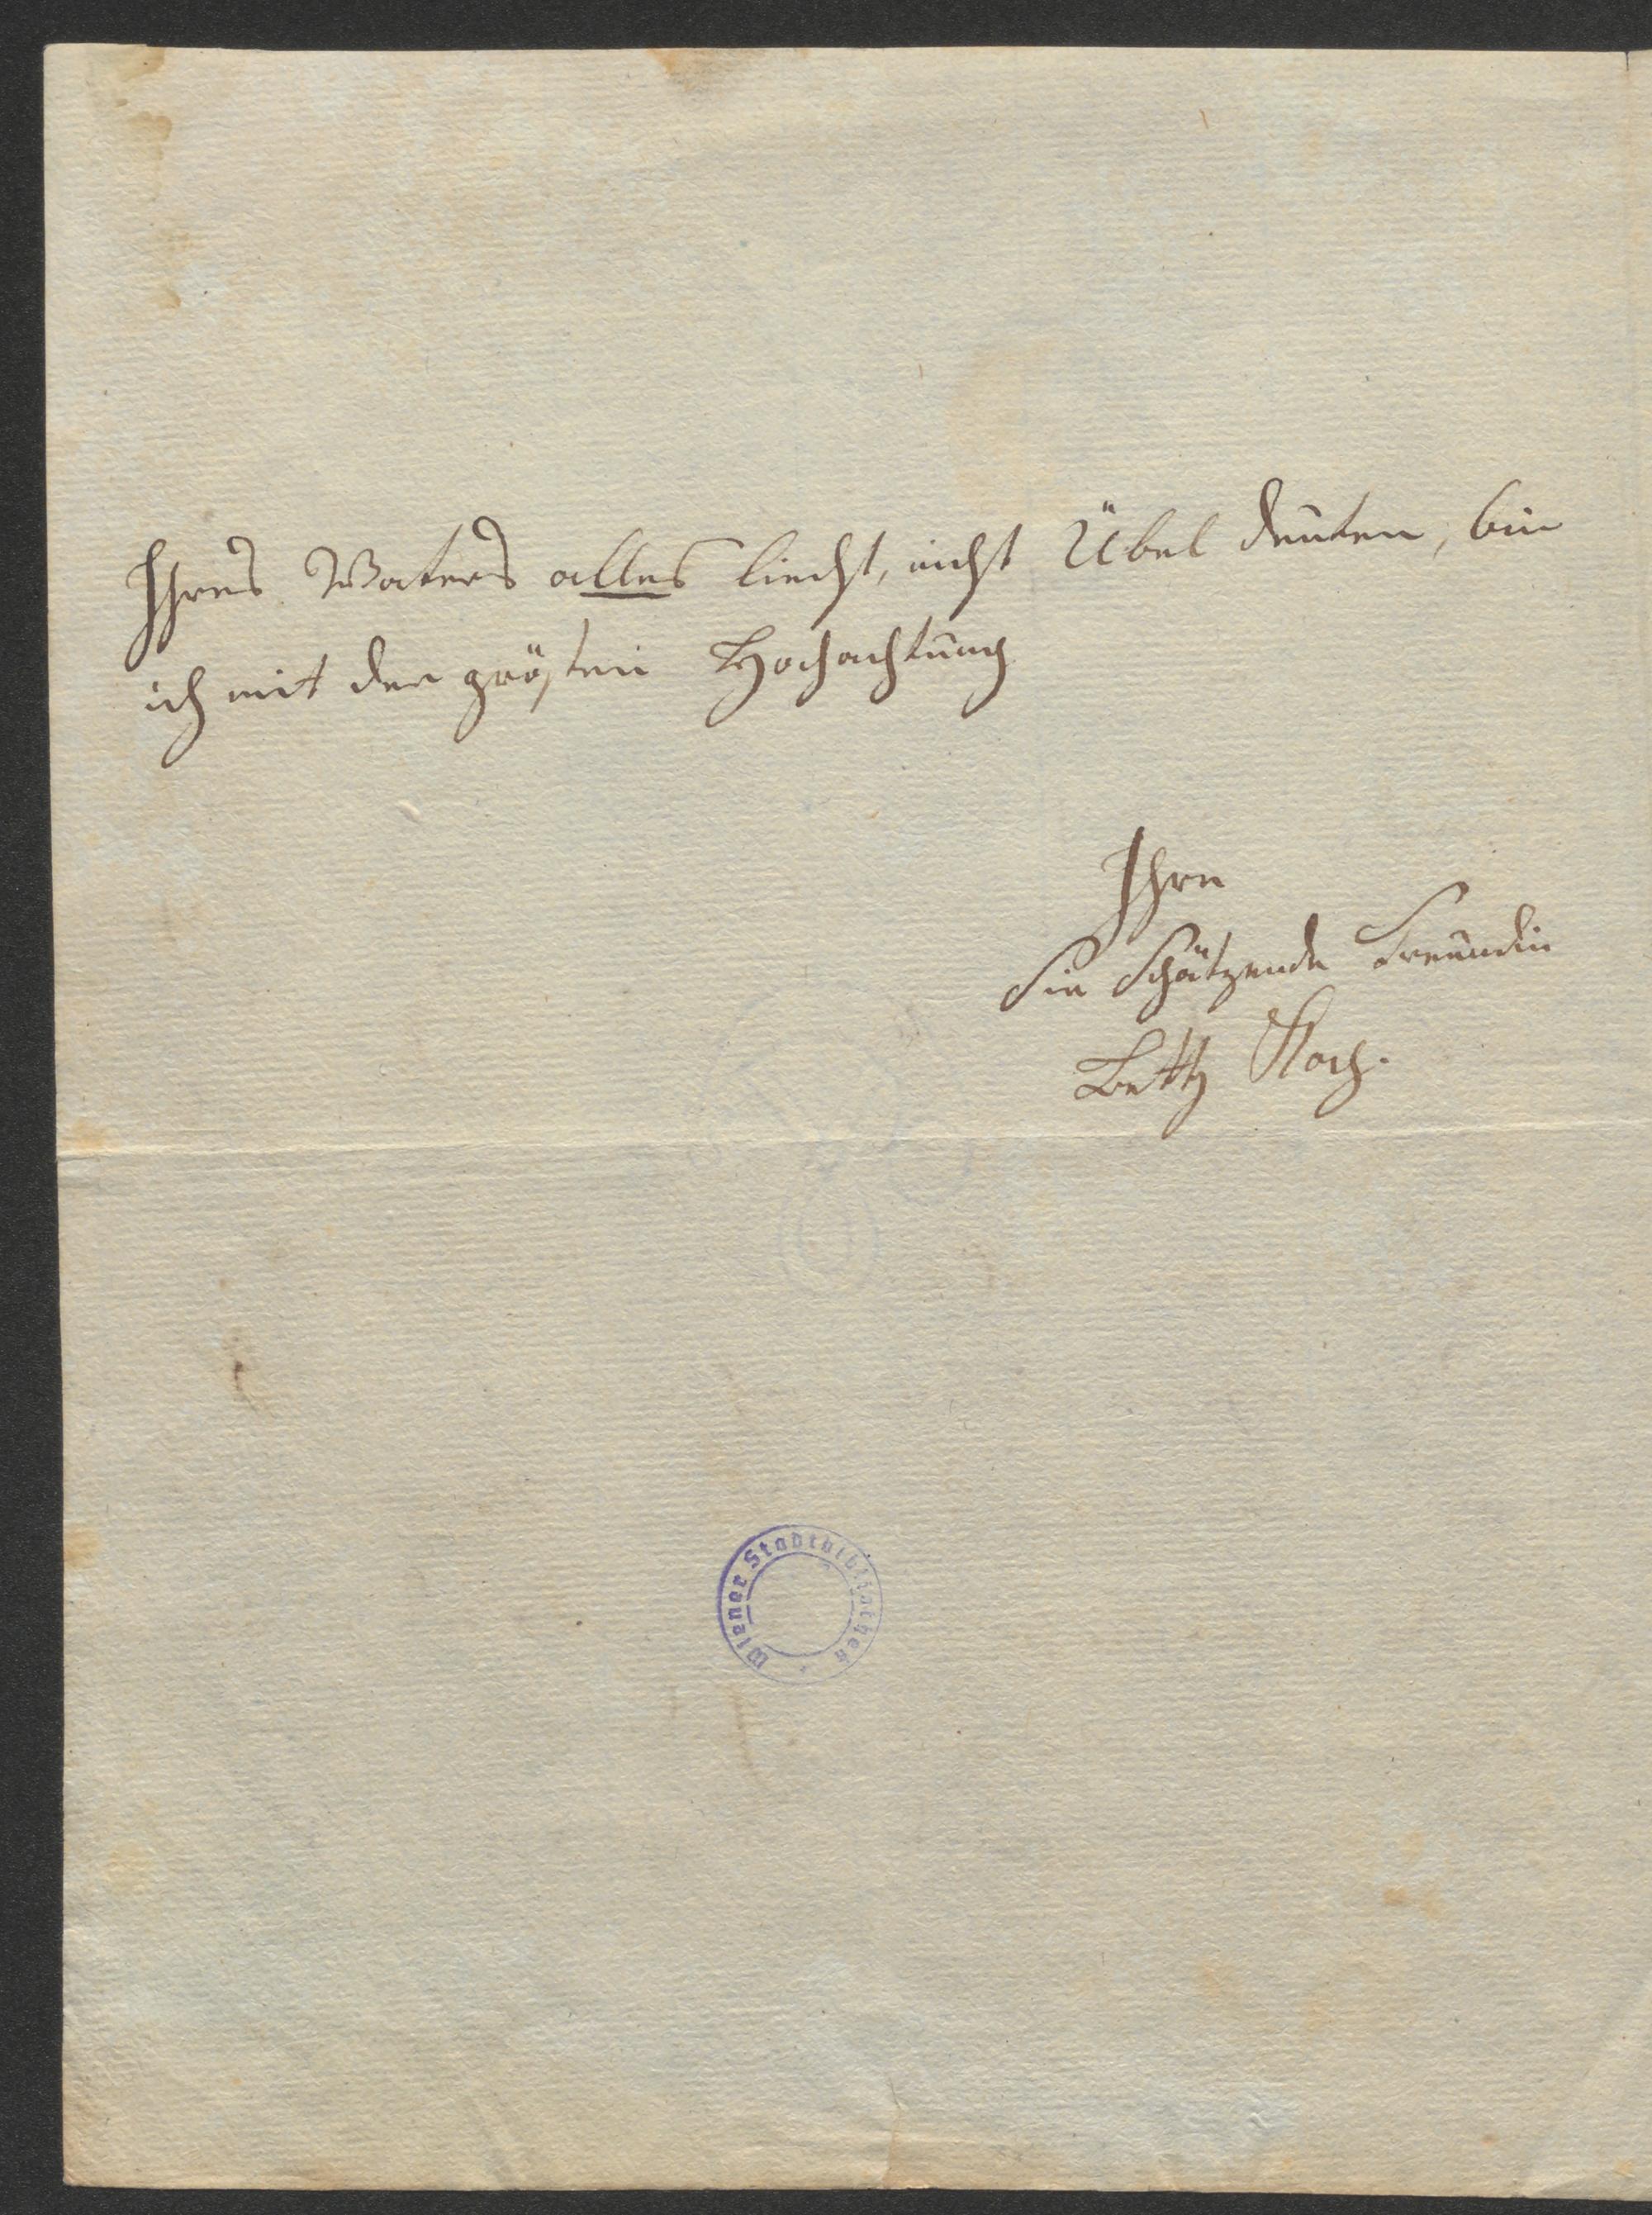 Ihres Waters alles liecht, nicht Übel deuten, bin
ich mit der grösten Hochachtung
Ihre
Sie Schätzende Freundin
Betty Koch.
Wiener Stadtbibliothek